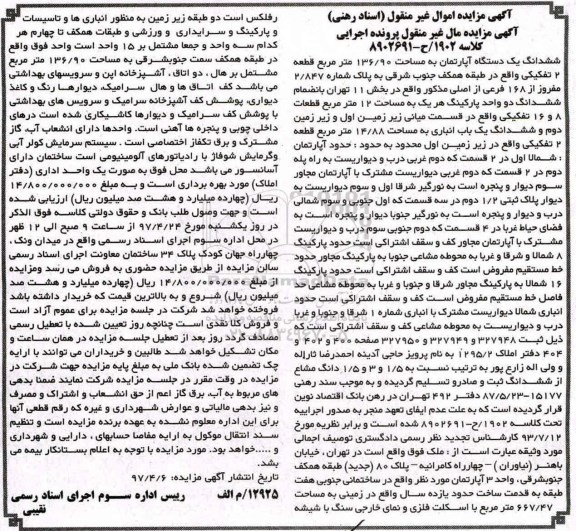 آگهی مزایده اموال غیر منقول (اسناد رهنی)
آگهی مزایده مال غیر منقول پرونده اجرایی
کلاسه ۱۹۰۲/ج-۸۹۰۲۶۹۱
ششدانگ یک دستگاه آپارتمان به مساحت ۱۳۶/۹۰ متر مربع قطعه
۲ تفکیکی واقع در طبقه همکف جنوب شرقی به پلاک شماره ۲/۸۴۷
مفروز از ۱۶۸ فرعی از اصلی مذکور واقع در بخش ۱۱ تهران بانضمام
ششدانگ دو واحد پارکینگ هر یک به مساحت ۱۲ متر مربع قطعات
۸ و ۱۶ تفکیکی واقع در قسمت میانی زیر زمین اول و زیر زمین
دوم و ششدانگ یک باب انباری به مساحت ۱۴/۸۸ متر مربع قطعه
۲ تفکیکی واقع در زیر زمین اول محدود به حدود : حدود آپارتمان
: شمالا اول در ۲ قسمت که دوم غربی درب و دیواریست به راه پله
دوم در ۲ قسمت که دوم غربی دیواریست مشترک با آپارتمان مجاور
سوم دیوار و پنجره است به نورگیر شرقا اول و دوم دیواریست به
دیوار پلاک ثبتی ۱/۲ دوم در سه قسمت که اول جنوبی و سوم شمالی
درب و دیوار و پنجره است به نورگیر جنوبا دیوار و پنجره است به
فضای حیاط غربا در ۴ قسمت که دوم جنوبی سوم درب و دیواریست
مشترک با آپارتمان مجاور کف و سقف اشتراکی است حدود پارکینگ
۸ شمالا و شرقا و غربا به محوطه مشاعی جنوبا به پارکینگ مجاور حدود
خط مستقیم مفروض است کف و سقف اشتراکی است حدود پارکینگ
۱۶ شمالا به پارکینگ مجاور شرقا و جنوبا و غربا به محوطه مشاعی حد
فاصل خط مستقیم مفروض است کف و سقف اشتراکی است حدود
انباری شمالا دیواریست مشترک با انباری شماره ۱ شرقا و جنوبا و غربا
درب و دیواریست به محوطه مشاعی کف و سقف اشتراکی است که
ذیل ثبت ۳۲۷۹۴۸ و ۳۲۷۹۴۹ و ۳۲۷۹۵۰ صفحه ۴۰۰ و ۴۰۲ و
۴۰۴ دفتر املاک ۱۲۹۵/۲ به نام پرویز حاجی آدینه احمدرضا ثارالله
و ولی اله زارع پور به ترتیب نسبت به ۱/۵ و ۳ و ۱/۵ دانگ مشاع
از ششدانگ ثبت و صادرو تسلیم گردیده و به موجب سند رهنی
۱۵۱۷۷-۸۷/۵/۲۳ دفتر ۴۹۲ تهران در رهن بانک اقتصاد نوین
قرار گردیده است که به علت عدم ایفای تعهد منجر به صدور اجراییه
تحت کلاسه ۱۹۰۲/ج-۸۹۰۲۶۹۱ شده است و برابر نظریه مورخ
۹۳/۷/۱۲ کارشناس تجدید نظر رسمی دادگستری توصیف اجمالی
مورد وثیقه عبارت است از : ملک فوق واقع است در تهران، خیابان
باهنر (نیاوران) – چهارراه کامرانیه – پلاک ۸۰ (جدید) طبقه همکف
جنوبشرقی، واحد ۳ آپارتمان مورد نظر واقع در ساختمانی جنوبی هفت
طبقه به قدمت ساخت حدود یازده سال واقع در زمینی به مساحت
۶۶۷/۴۷ متر مربع با اسکلت فلزی و نمای خارجی سنگ با شیشه
رفلکس است دو طبقه زیر زمین به منظور انباری ها و تاسیسات
و پارکینگ و سرایداری و ورزشی و طبقات همکف تا چهارم هر
کدام سه واحد و جمعا مشتمل بر ۱۵ واحد است واحد فوق واقع
در طبقه همکف سمت جنوبشرقی به مساحت ۱۳۶/۹۰ متر مربع
مشتمل بر هال ، دو اتاق ، آشپزخانه اپن و سرویسهای بهداشتی
می باشد کف اتاق ها و هال سرامیک، دیوارها رنگ و کاغذ
دیواری، پوشش کف آشپزخانه سرامیک و سرویس های بهداشتی
با پوشش کف سرامیک و دیوارها کاشیکاری شده است درهای
داخلی چوبی و پنجره ها آهنی است. واحدها دارای انشعاب آب، گاز
مشترک و برق تکفاز اختصاصی است . سیستم سرمایش کولر آبی
وگرمایش شوفاژ با رادیاتورهای آلومینیومی است ساختمان دارای
آسانسور می باشد محل فوق به صورت یک واحد اداری (دفتر
املاک) مورد بهره برداری است و به مبلغ ۱۴/۸۰۰/۰۰۰/۰۰۰
ریال (چهارده میلیارد و هشت صد میلیون ریال) ارزیابی شده
است و جهت وصول طلب بانک و حقوق دولتی کلاسه فوق الذکر
در روز یکشنبه مورخ ۹۷/۴/۲۴ از ساعت ۹ صبح الی ۱۲ ظهر
در محل اداره سوم اجرای اسناد رسمی واقع در میدان ونک ،
چهارراه جهان کودک پلاک ۳۴ ساختمان معاونت اجرای اسناد رسمی
سالن مزایده از طریق مزایده حضوری به فروش می رسد ومزایده
از مبلغ ۱۴/۸۰۰/۰۰۰/۰۰۰ ریال (چهارده میلیارد و هشت صد
میلیون ریال) شروع و به بالاترین قیمت که خریدار داشته باشد
فروخته خواهد شد شرکت در جلسه مزایده برای عموم آزاد است
و فروش کلا نقدی است چنانچه روز تعیین شده با تعطیل رسمی
مصادف گردد روز بعد از تعطیل جلسه مزایده در همان ساعت و
مکان تشکیل خواهد شد طالبین و خریداران می توانند با ارایه
چک تضمین شده بانک ملی به مبلغ پایه مزایده جهت شرکت در
مزایده در وقت مقرر در جلسه مزایده شرکت نمایند ضمنا بدهی
های مربوط به آب، برق گاز اعم از حق انشعاب و اشتراک و مصرف
و نیز بدهی مالیاتی و عوارض شهرداری و غیره که رقم قطعی آنها
برای این اداره معلوم نشده به عهده برنده مزایده است و تنظیم
سند انتقال موکول به ارایه مفاصا حسابهای ، دارایی و شهرداری
و .....خواهد بود. مورد مزایده با توجه به اعلام بستانکار بیمه می
باشد.
تاریخ انتشار آگهی مزایده: ۹۷/۴/۶
۱۲۹۲۵/م الف رییس اداره سوم اجرای اسناد رسمی
نقیبی